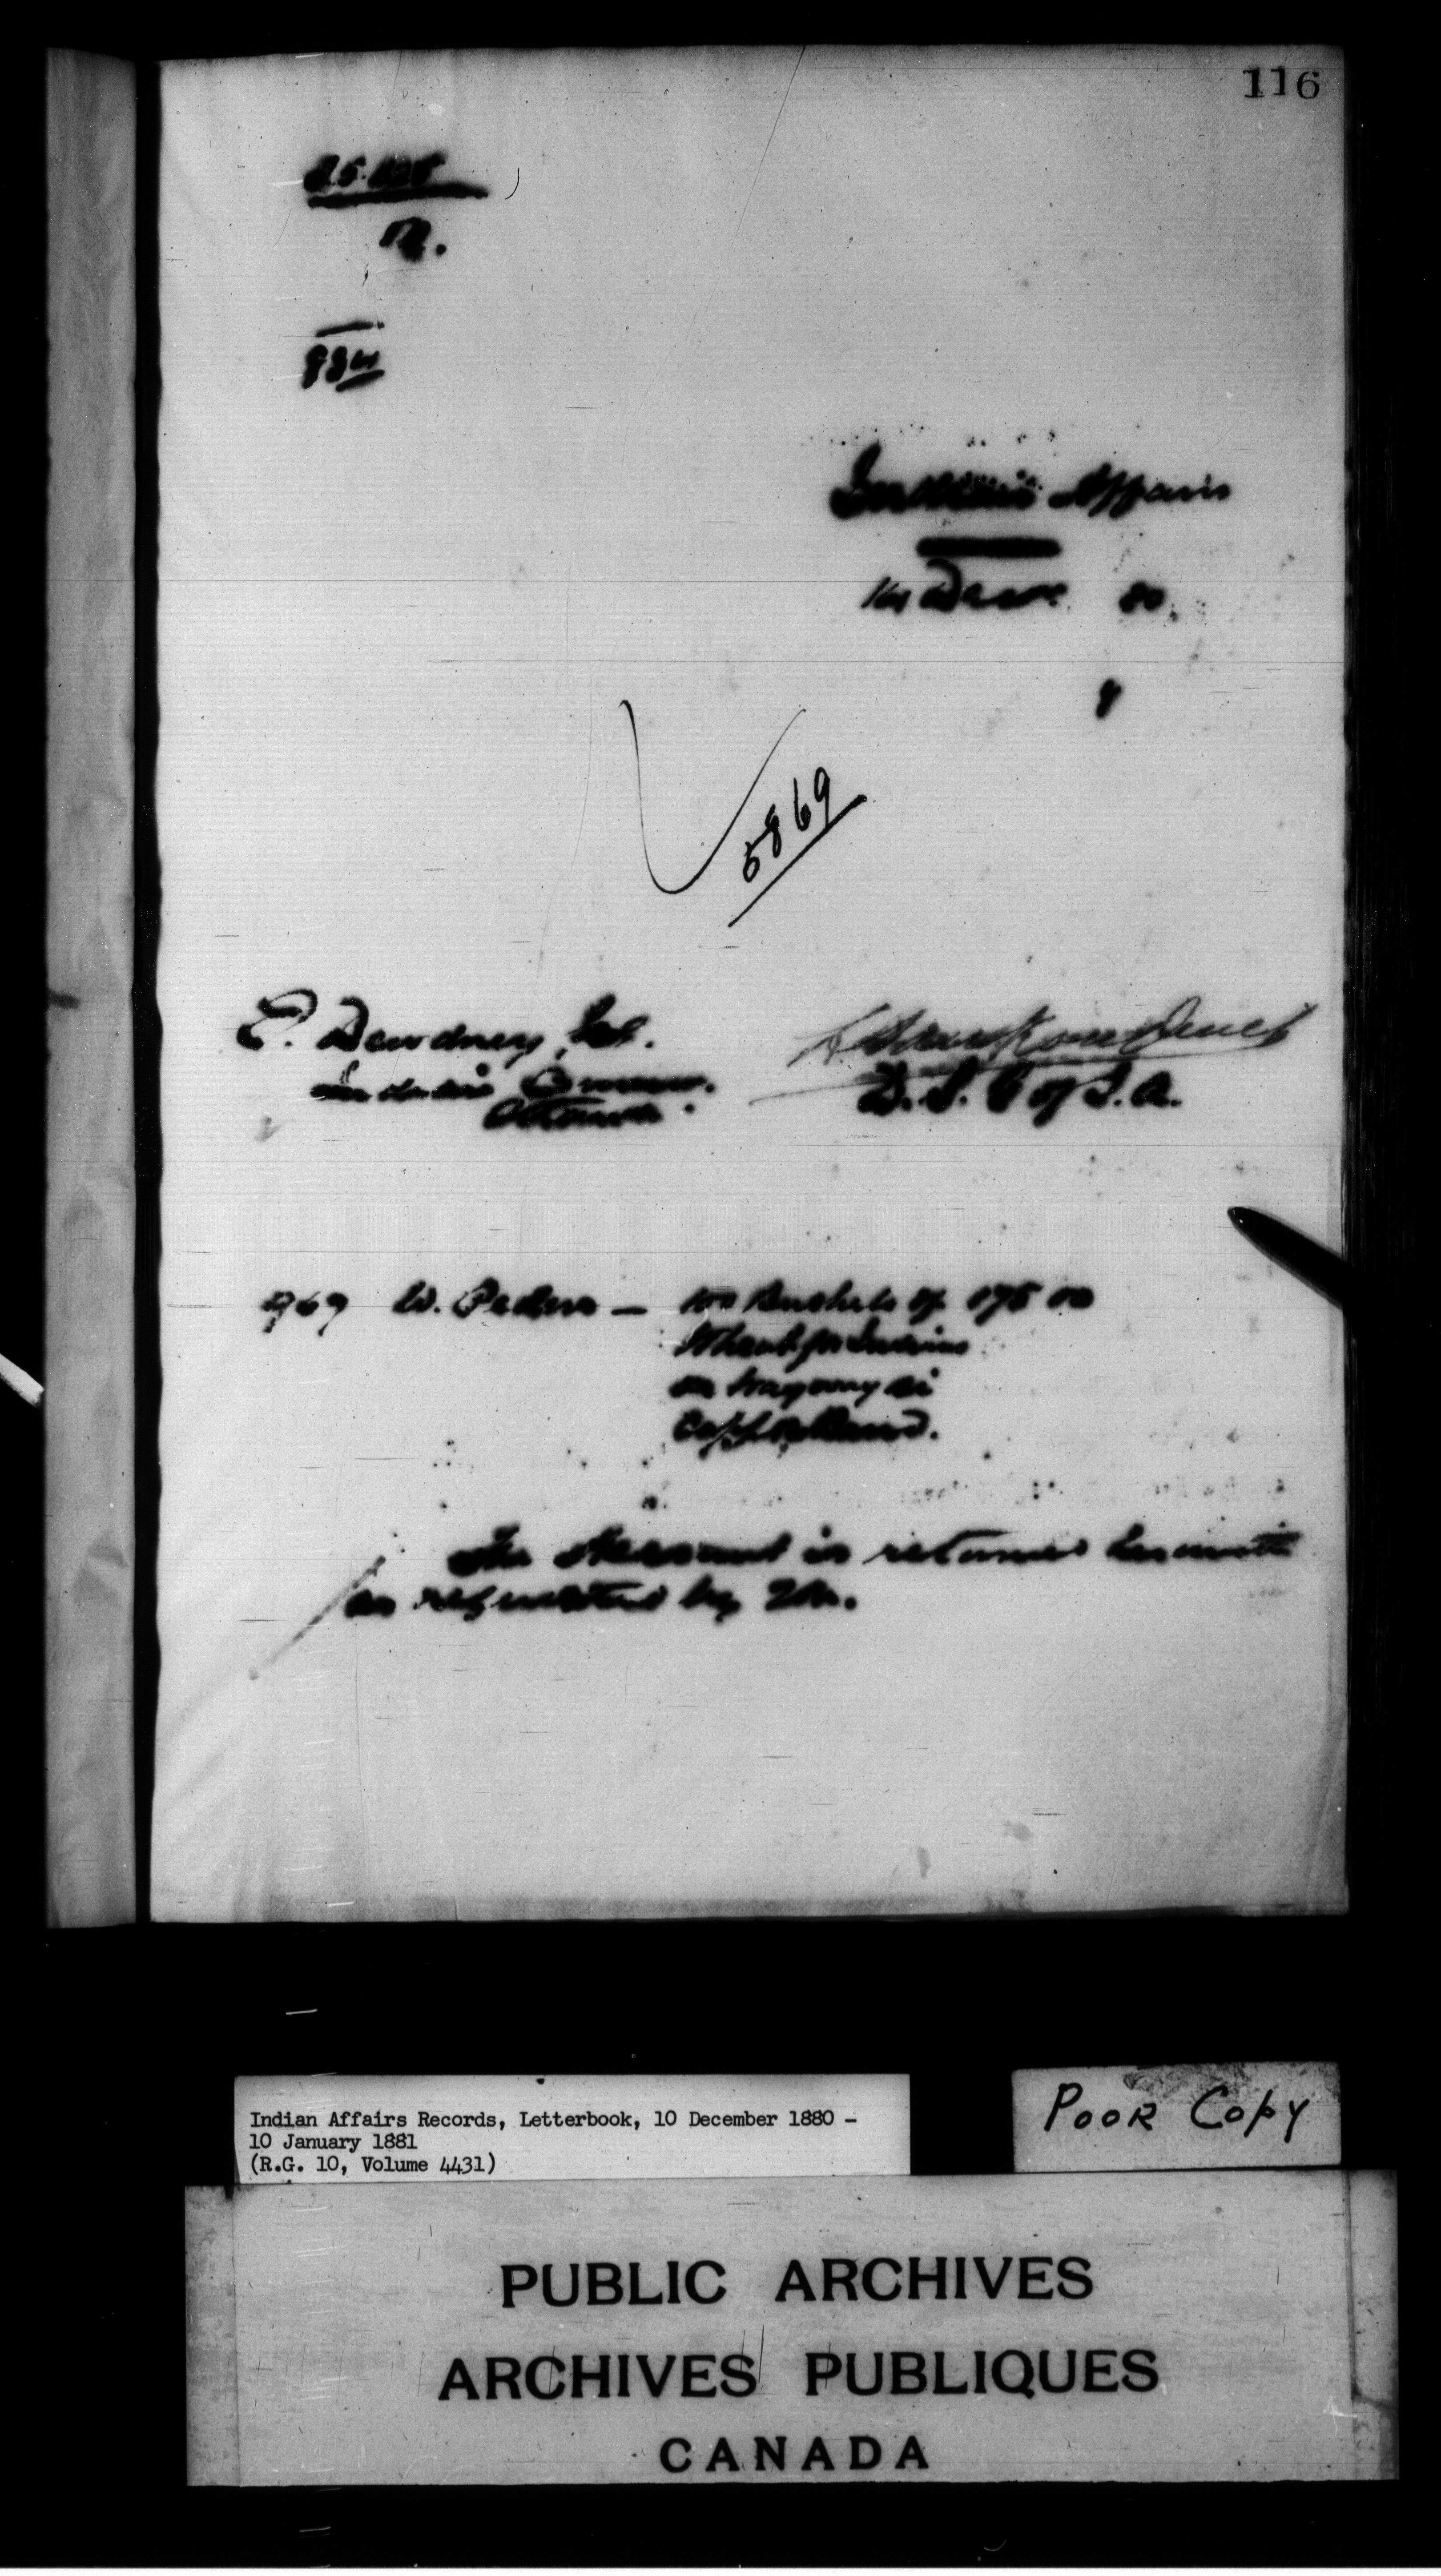 116
884
Indian Affairs
14 Decr. 80.
5869
E. Dewdney, Esq.
Indian Commr.
Ottawa.
D. S. G of I. A.
969 W. Peden — 100 Bushels of 175 00
Wheat for Indians
The account is returned herewith
as requested by you.
Indian Affairs Records, Letterbook, 10 December 1880 -
10 January 1881
(R.G. 10, Volume 4431)
POOR COPY
PUBLIC ARCHIVES
ARCHIVES PUBLIQUES
CANADA